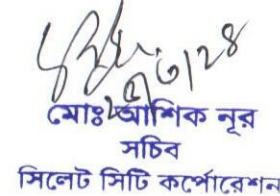 মোঃ আশিক নূর
সচিব
সিলেট সিটি কর্পোরেশন